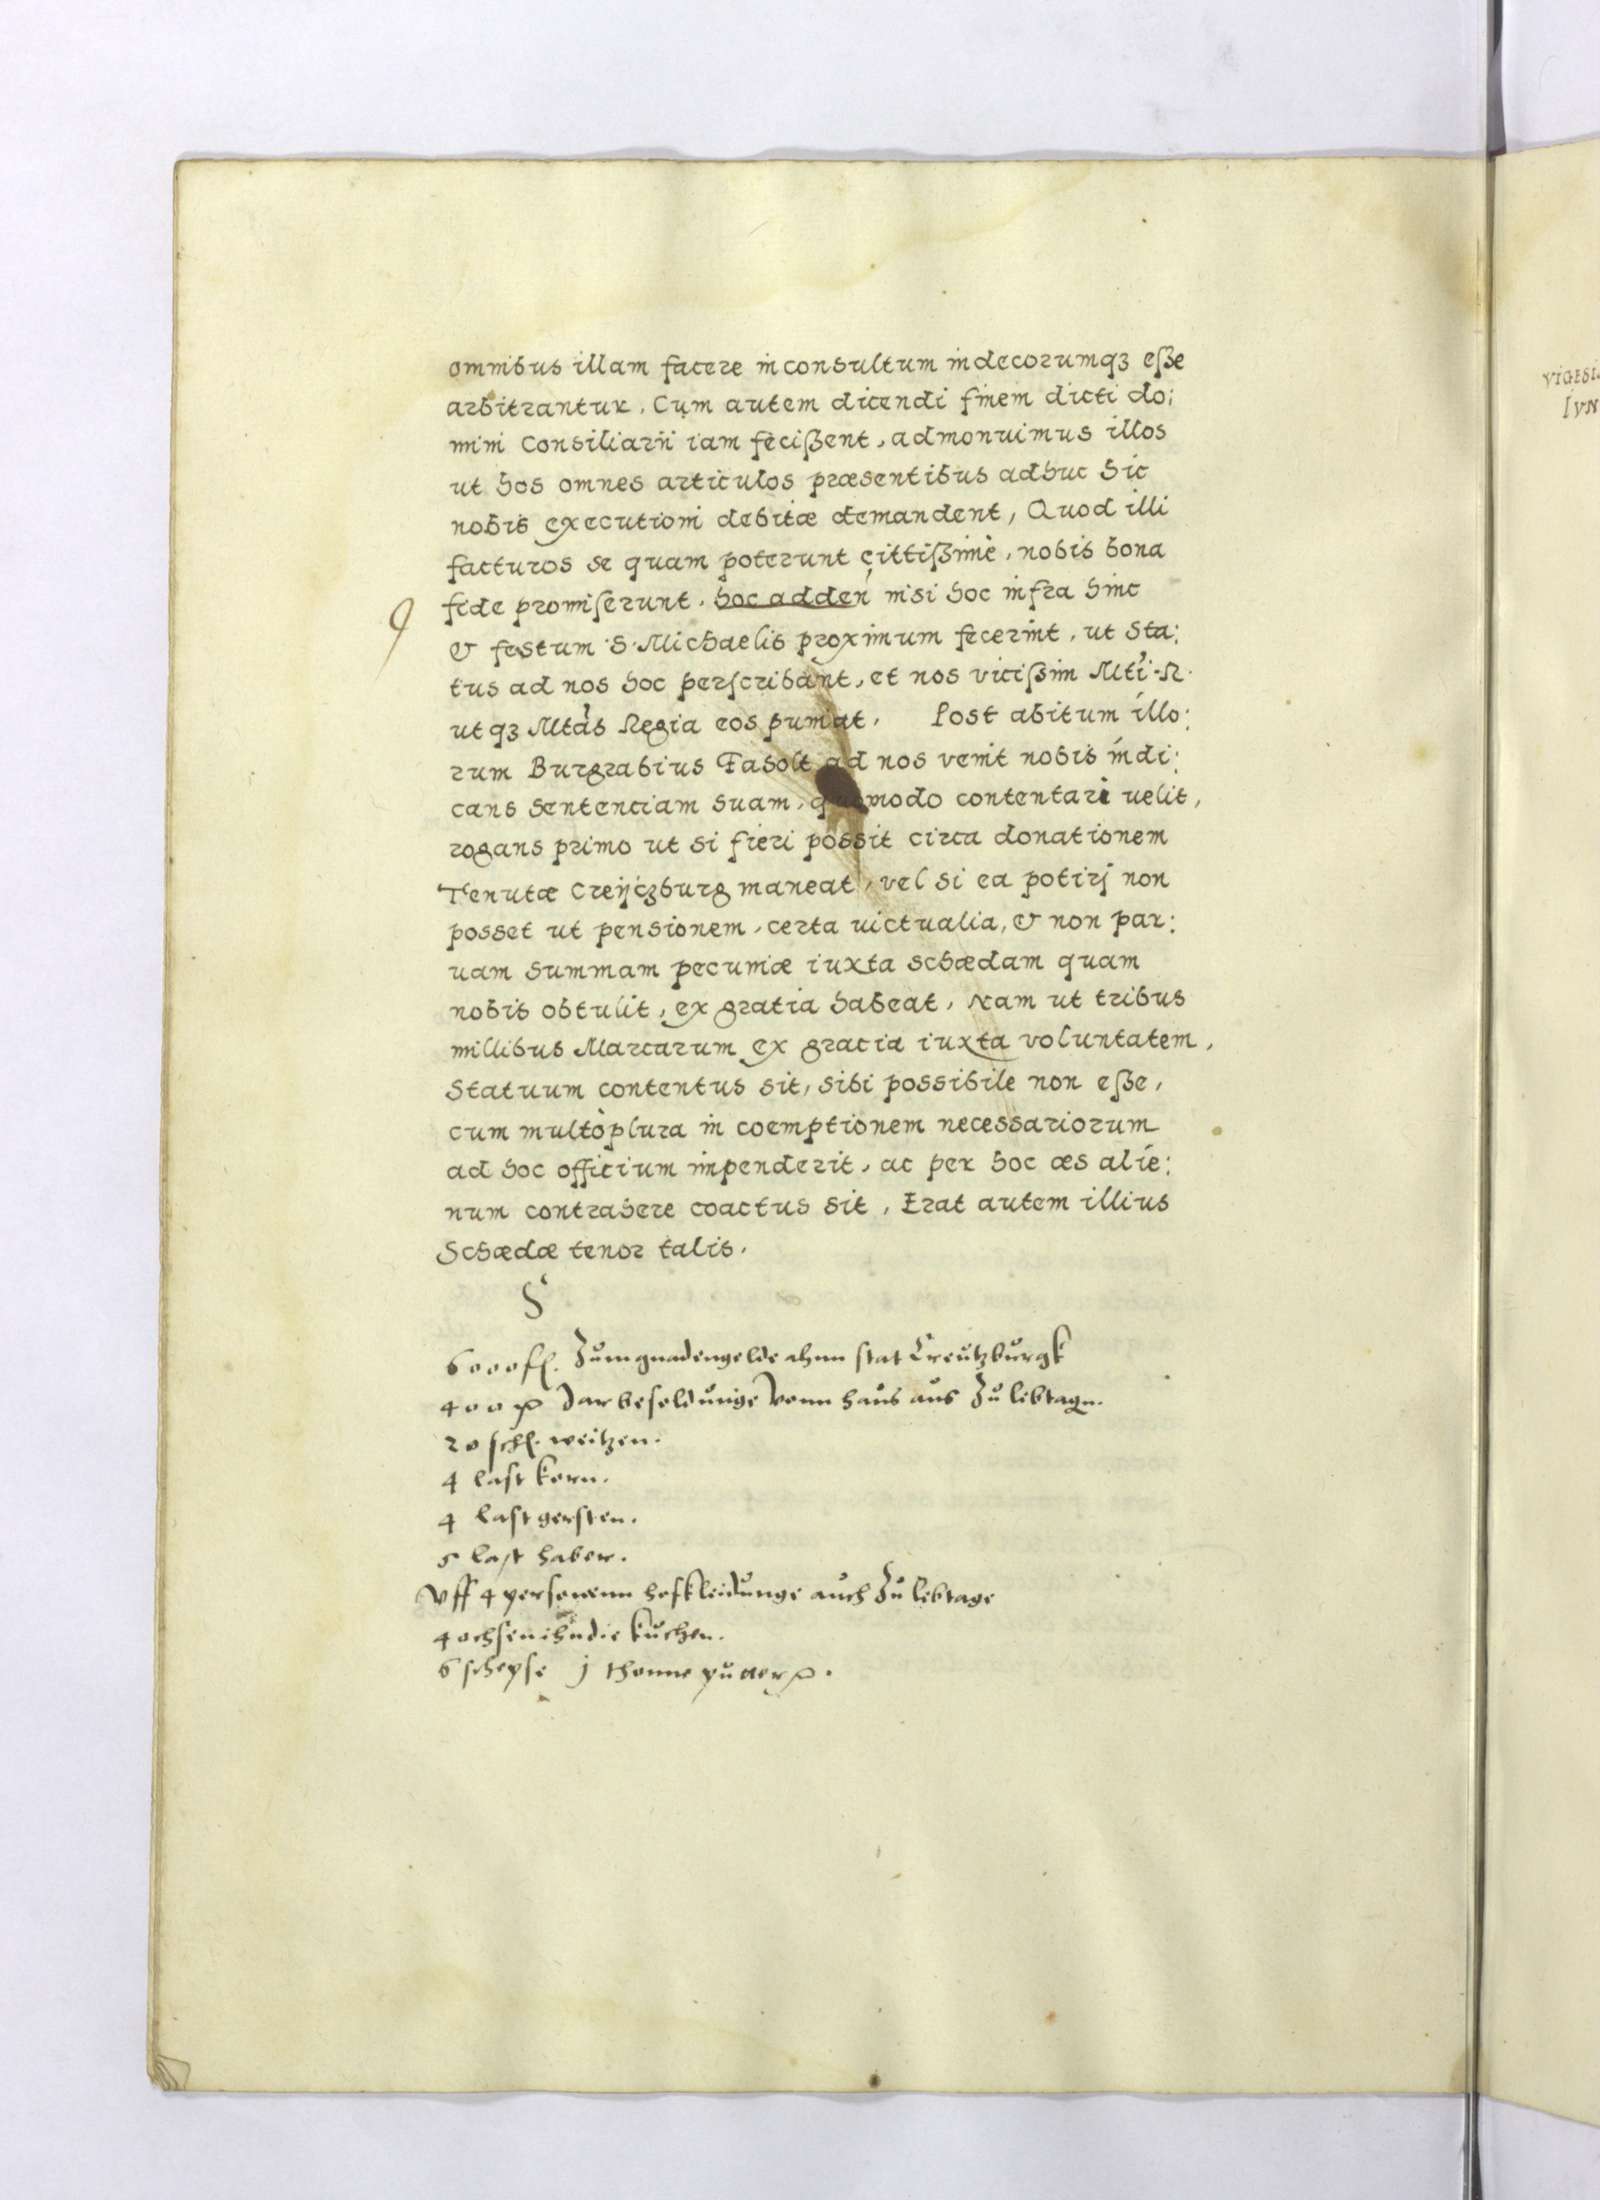 omnibus illam facere inconsultum indecorumqꝫ eſße
arbitrantur, Cum autem dicendi finem dicti do:
mini Consiliarii iam feciſßent, admonuimus illos
ut hos omnes articulos præsentibus adhuc hic
nobis executioni debitæ demandent, Quod illi
facturos se quam poterunt cittiſßimè, nobis bona
fide promiſerunt, hoc adden nisi hoc infra hinc
& festum S. Michaelis proximum fecerint, ut Sta:
tus ad nos hoc perſcribant, et nos viciſßim Mti R.
ut qꝫ Mtas Regia eos puniat, Post abitum illo:
rum Burgrabius Fasolt ad nos venit nobis indi:
cans Sentenciam suam, quomodo contentari velit,
rogans primo ut si fieri possit circa donationem
Tenutæ Creijczburg maneat, vel si ea potirj non
posset ut pensionem, certa victualia, & non par:
uam summam pecuniæ iuxta schædam quam
nobis obtulit, ex gratia habeat, Nam ut tribus
millibus Marcarum ex gracia iuxta voluntatem,
Statuum contentus sit, sibi possibile non eſße,
cum multò plura in coemptionem necessariorum
ad hoc officium impenderit, ac per hoc æs alie:
num contrahere coactus sit, Erat autem illius
Schædæ tenor talis.
6000 fl. Zum gnadengelde ahnn stat Creutzburgk
400 Jarbesoldunge vonn haus aus Zu lebtagn.
20 schl. weitzen.
4 last korn.
4 last gersten.
5 last haber.
Vff 4 personenn hofkleidunge auch Zu lebtage
4 ochsen ihn die kuchen.
6 schepse j thonne putter
VIGESI
IVN